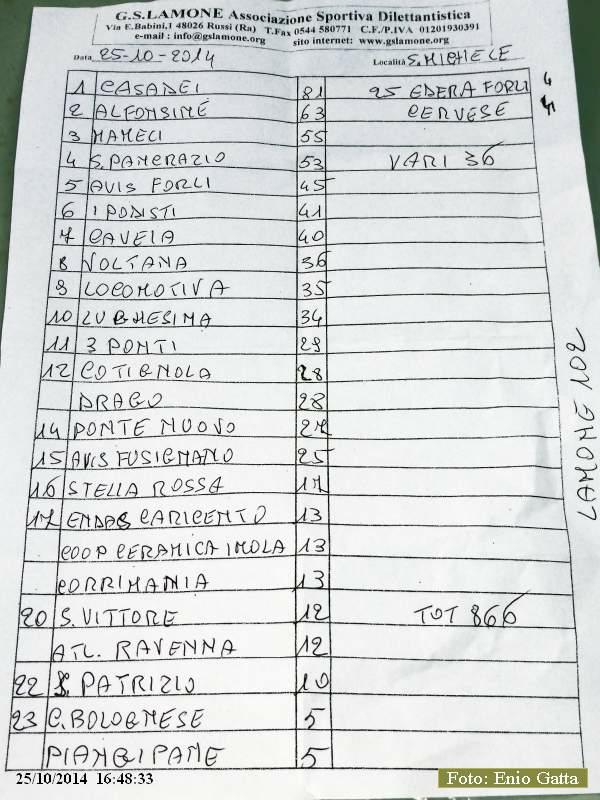 G.S.LAMONE Associazione Sportiva Dilettantistica
Via F.Babini,1 48026 Russi (Ra) T.Fax 0544 580771 C.F./P.IVA 01201930391
e-mail : info@gslamone.org sito internet: www.gslamone.org
Data 25-10-2014 Località S.MICHELE
1 CASADEI 81 25 EDERA FORLI 4
2 ALFONSINE 63 CERVESE 4
3 MAMELI 55
4 S.PANCRAZIO 53 VARI 36
5 AVIS FORLI 45
6 I PODISTI 41
7 CAVEJA 40
8 VOLTANA 36
9 LOCOMOTIVA 35
10 LUGHESINA 34
11 3 PONTI 29
12 COTIGNOLA 28
DRAGO 28
14 PONTE NUOVO 27
15 AVIS FUSIGNANO 25
16 STELLA ROSSA 17
17 ENDAS CARICENTO 13
COOP CERAMICA IMOLA 13
CORRIMANIA 13
20 S.VITTORE 12 TOT 866
ATL. RAVENNA 12
22 S. PATRIZIO 10
23 C.BOLOGNESE 5
PIANGIPANE 5
LAMONE 102
25/10/2014 16:48:33
Foto: Enio Gatta